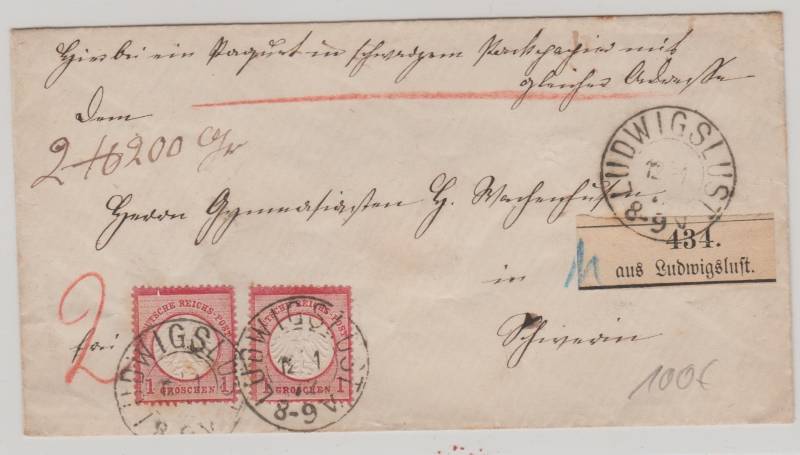 Hierbei ein Paquet in schwarzem Packpapier mit
gleicher Adresse
Dem
200 Gr
Herrn Gymnasiasten H. Wachenhusen
in
Schwerin
frei
2
LUDWIGSLUST
12 1
8-9 V
434.
aus Ludwigslust.
DEUTSCHE REICHS-POST
1 GROSCHEN 1
LUDWIGSLUST
DEUTSCHE REICHS-POST
1 GROSCHEN 1
LUDWIGSLUST
12 1
8-9 V
100€